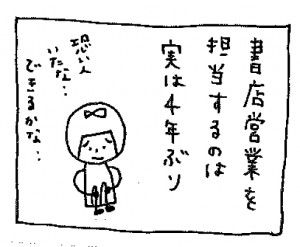 書店営業を
担当するのは
実は4年ぶり
恐い人
いたな…
できるかな…